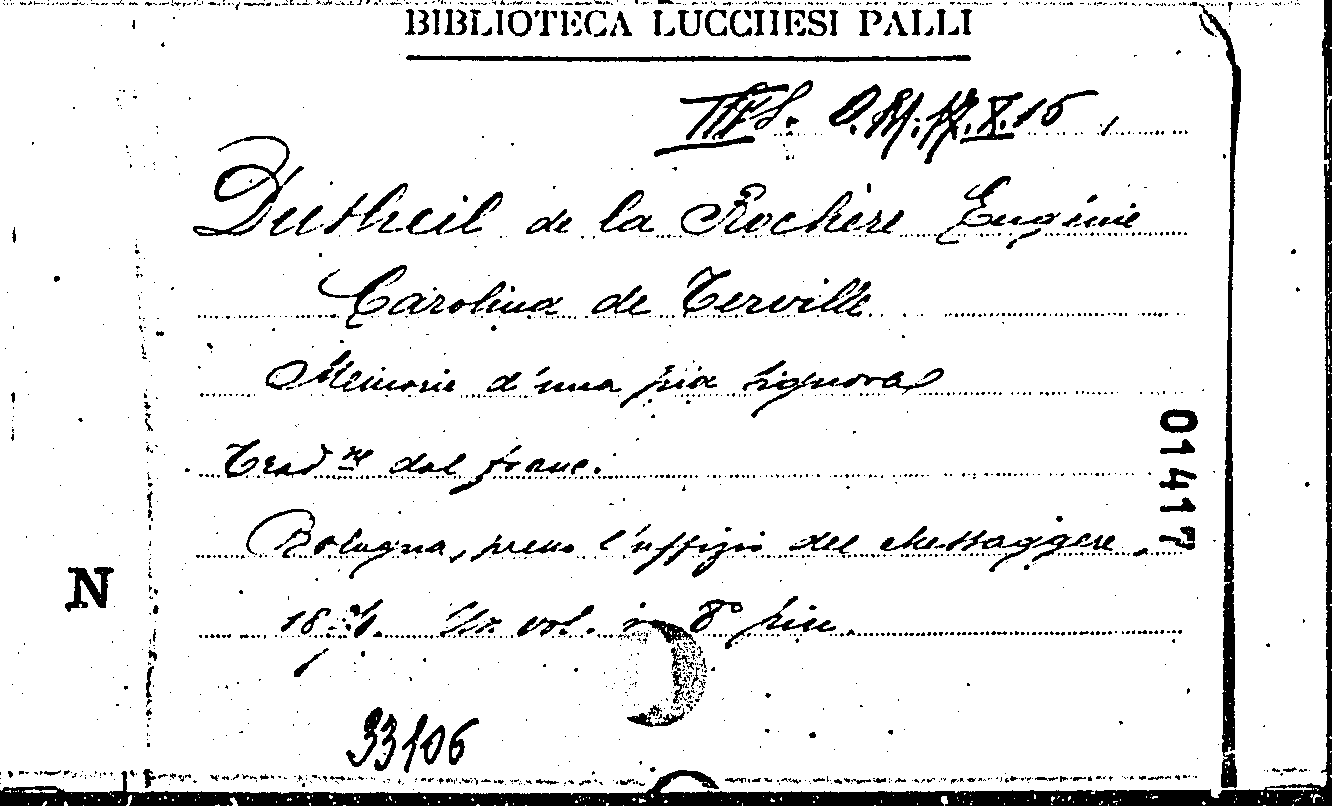 BIBLIOTECA LUCCHESI PALLI
Dutheil de la Rochère Eugénie
Carolina de Terville
Memorie d'una pia signora
Trad.ne dal franc.
Bologna, presso l'uffizio del Messaggere,
Un vol. in 8° picc.
33106
N
01417